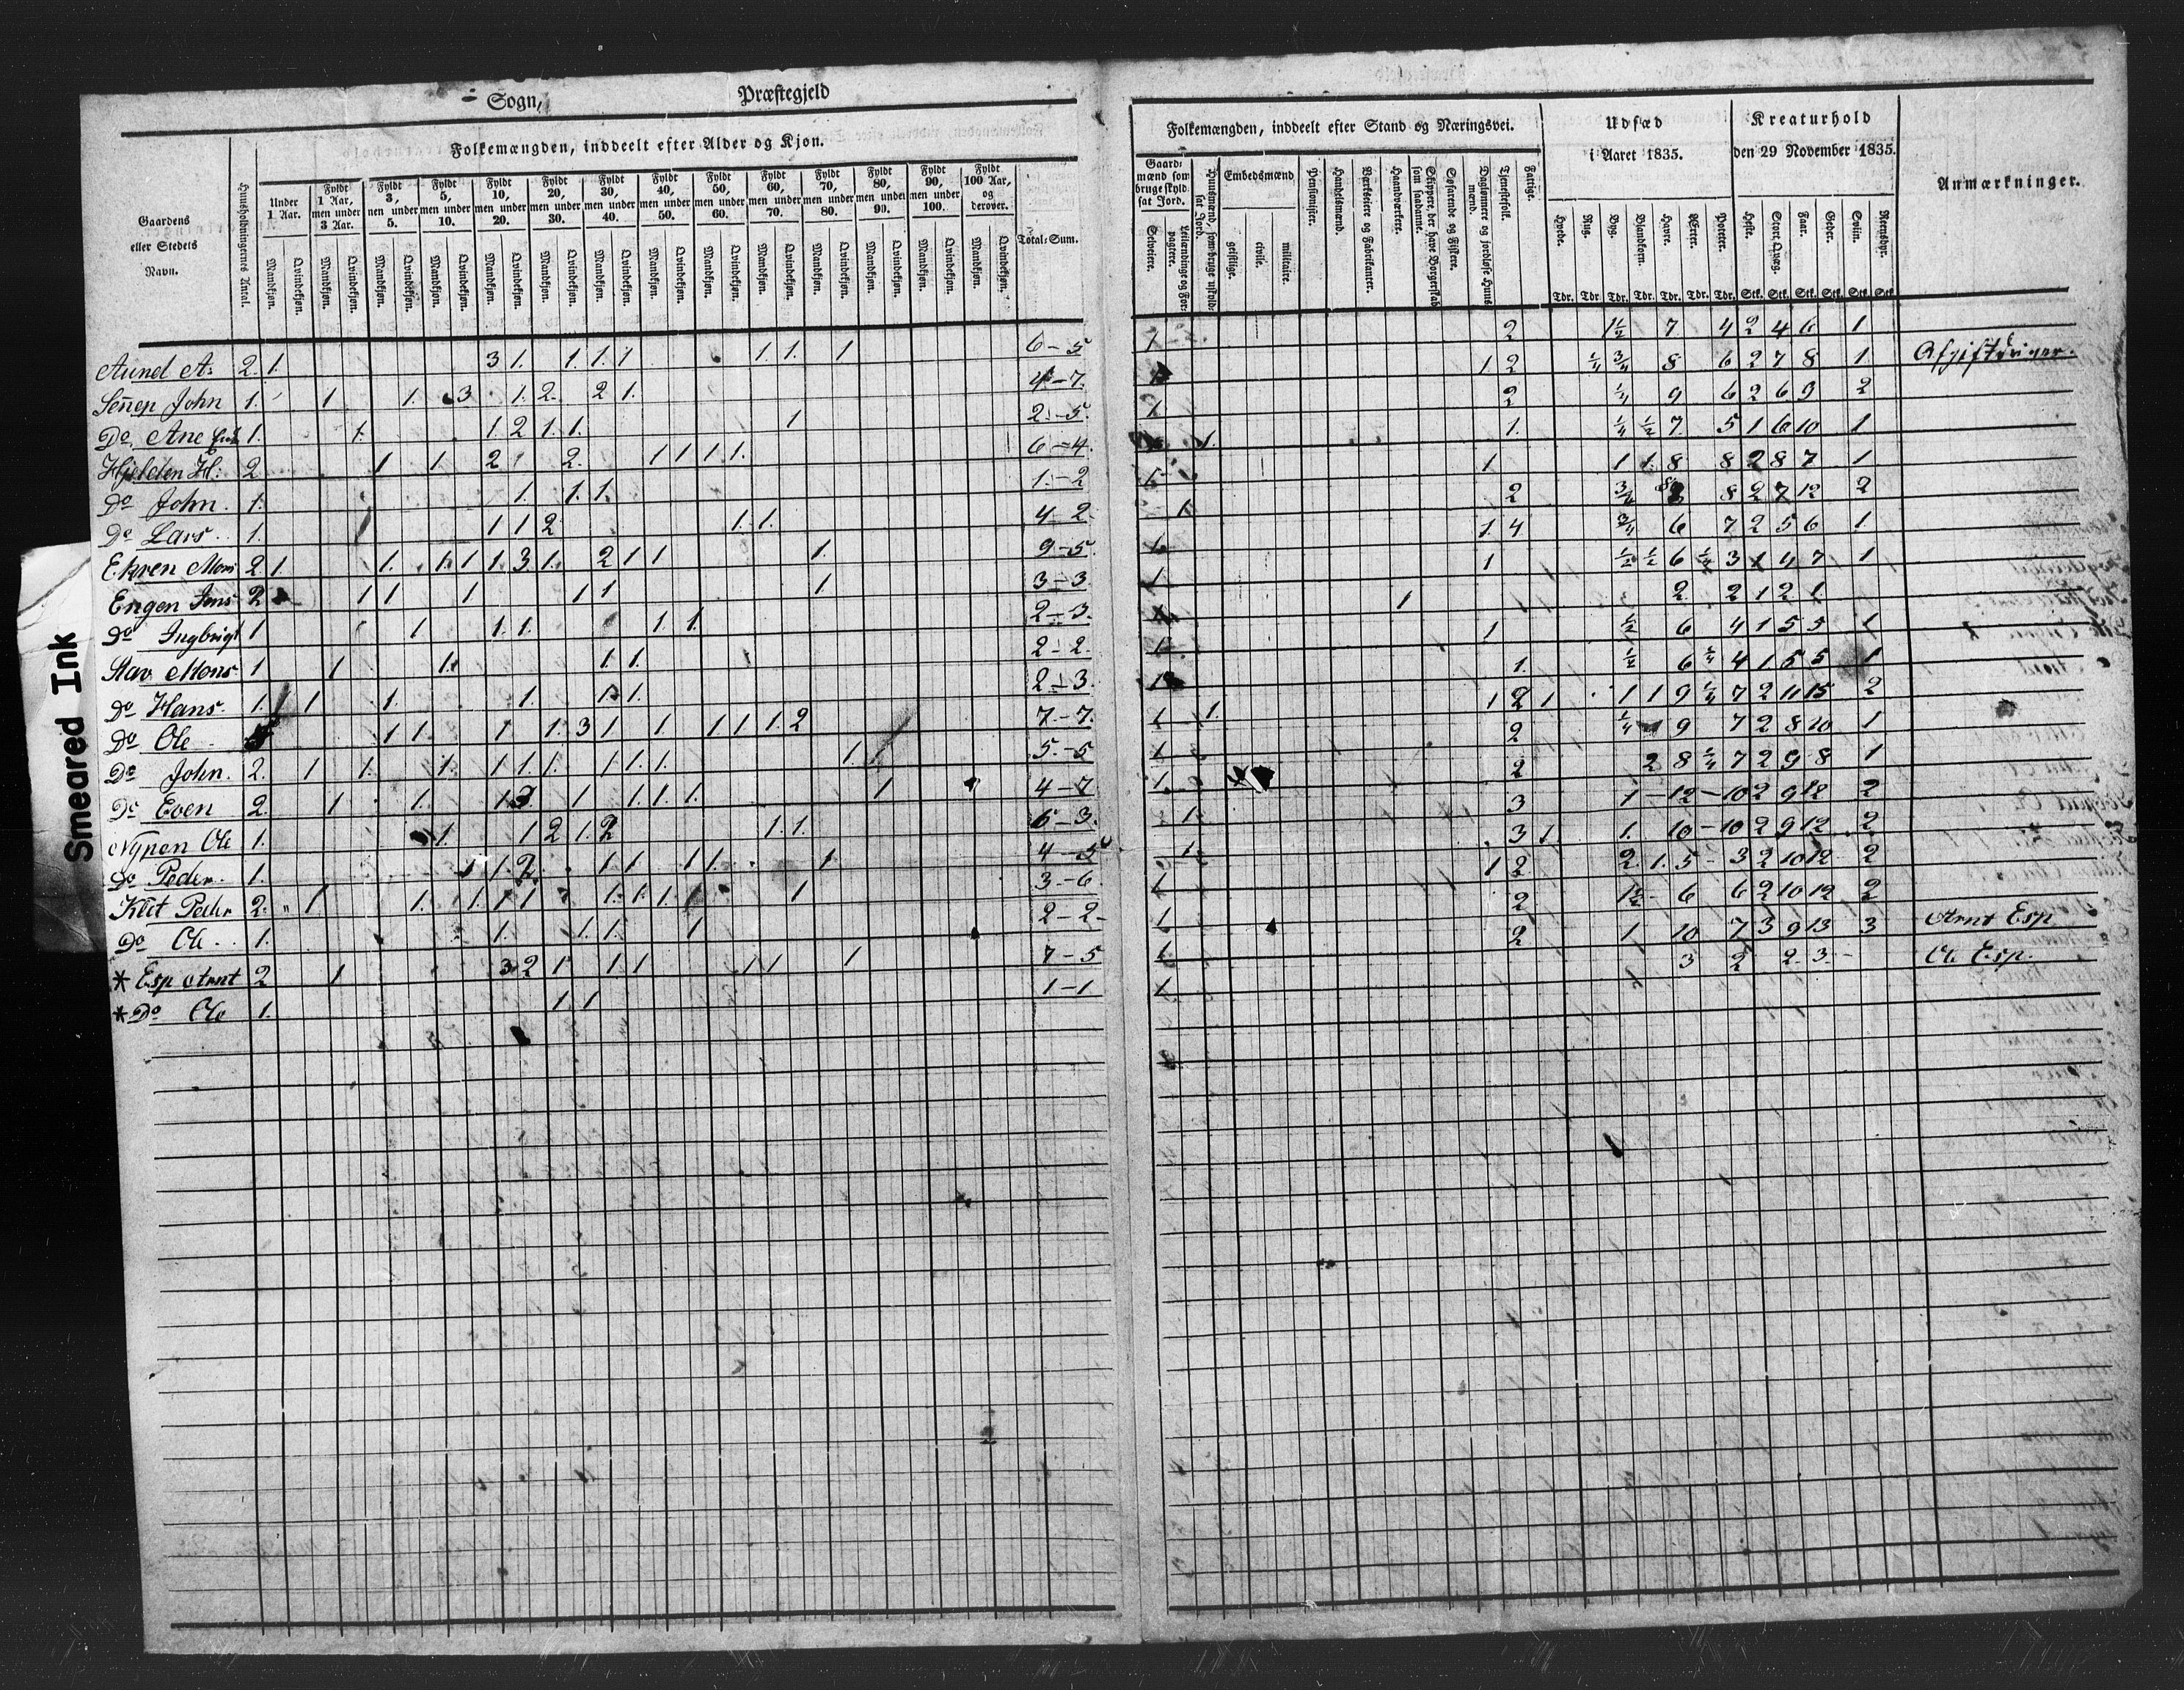 Sogn,
Præstegjeld
Folkemængden, inddeelt efter Alder og Kjøn.
Gaardens eller Stedets Navn.
Huusholdningernes Antal.
Under 1 Aar.
Fyldt 1 Aar, men under 3 Aar.
Fyldt 3, men under 5.
Fyldt 5, men under 10.
Fyldt 10, men under 20.
Fyldt 20, men under 30.
Fyldt 30, men under 40.
Fyldt 40, men under 50.
Fyldt 50, men under 60.
Fyldt 60, men under 70.
Fyldt 70, men under 80.
Fyldt 80, men under 90.
Fyldt 90, men under 100.
Fyldt 100 Aar, og derover.
Mandkjøn. Qvindekjøn.
Total-Sum.
Aunel A. 2. 1. 3 1. 1. 1. 1 1. 1. 1 6-5
Señep John 1. 1 1. 3 1. 2. 2 1. 4-7.
Do. Ane 1. 1. 1. 2 1. 1. 1 2.-5.
Hjelden H. 2 1 1. 2 2. 1 1 1. 1. 6-4.
Do John. 1. 1. 1. 1. 1.-2
Do Lars. 1. 1 1 2 1. 1. 4-2.
Ekren Mons 2 1. 1. 1. 1 1. 3 1. 2 1 1 1. 9-5.
Engen Jens 2 1 1 1 1 1 1 3-3
Do Ingbrigt 1 1 1. 1. 1. 1. 2-3.
Stav Mons 1 1 1. 1. 1. 2-2.
Do Hans. 1. 1 1. 1. 1. 1. 2-3.
Do Ole 1 1 1 1. 3 1 1. 1 1 1. 2 7.-7.
Do John. 2. 1 1. 1. 1. 1. 1. 1. 1. 1. 1 1 5.-5
Do Even 2. 1 1. 1. 3 1 1. 1. 1. 1 4-7
Nypen Ole 1. 1. 1 2 1. 2 1. 1. 6-3.
Do Peder. 1. 1 1. 2. 1. 1. 1 1. 1. 4-5
Klet Peder 2. 1 1. 1. 1 1 1. 1. 1. 1. 3.-6
Do Ole. 1. 1. 1. 1. 1 2-2-
* Esp Arnt 2 1 3 2 1 1 1 1 1 1 7-5
* Do Ole 1. 1. 1 1-1
Folkemængden, inddeelt efter Stand og Næringsvei.
Udsæd i Aaret 1835.
Kreaturhold den 29 November 1835.
Anmærkninger.
Gaardmænd som bruge skyldsat Jord.
Selveiere.
Leilændinge og Forpagtere.
Huusmænd, som bruge uskyldsat Jord.
Embedsmænd
geistlige.
civile.
militaire.
Pensionister.
Handelsmænd.
Værkseiere og Fabrikanter.
Haandværkere.
Skippere, der have Borgerskab som saadanne.
Søfarende og Fiskere.
Daglønnere og jordløse Huusmænd.
Tjenestefolk.
Fattige.
Hvede. Tdr.
Rug. Tdr
Byg. Tdr.
Blandkorn. Tdr.
Havre. Tdr.
Erter. Tdr.
Poteter. Tdr.
Heste. Stk.
Stort Qvæg. Stk.
Faar. Stk.
Geder. Stk.
Sviin. Stk.
Reensdyr. Stk
1 2 1½ 7 4 2 4 6 1
1 2 ¼ ¾ 8 6 2 7 8 1
1. 2 ¼ 9 6 2 6 9 2
1. 1. ¼ ½ 7. 5 1 6 10 1
1 1 1. 8 8 2 8 7 1
1 2 ¾ 8 2 7 12 2
1 4 ¾ 6 7 2 5 6 1
1 1 ½ ½ 6 ¼ 3 1 4 7 1
1 2 2 1 2 1.
1 ½ 6 4 1 5 5 1
1. ½ 6 ¼ 4 1 5 5 1
1 1. 1 2 1 1 1 9 ¼ 7 2 11 15 2
1 2 ¼ 9 7 2 8 10 1
1. 2 2 8 ¼ 7 2 9 8 1
1 3 1 12 10 2 9 12 2
1 3 1. 1. 10 10 2 9 12 2
1 1 2 2 1. 5 3 2 10 12 2
1 2 1½ 6 6 2 10 12 2
1 2 1 10 7 3 9 13 3
1 3 2 2. 3.
Arnt Esp
Ole Esp.
Smeared Ink